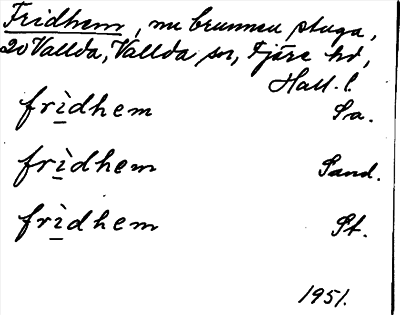 Fridhem, nu brunnen stuga,
20 Vallda, Vallda sn, Fjäre hd,
Hall. l.
frìdhem Sa.
frìdhem Sand.
frìdhem St.
1951.